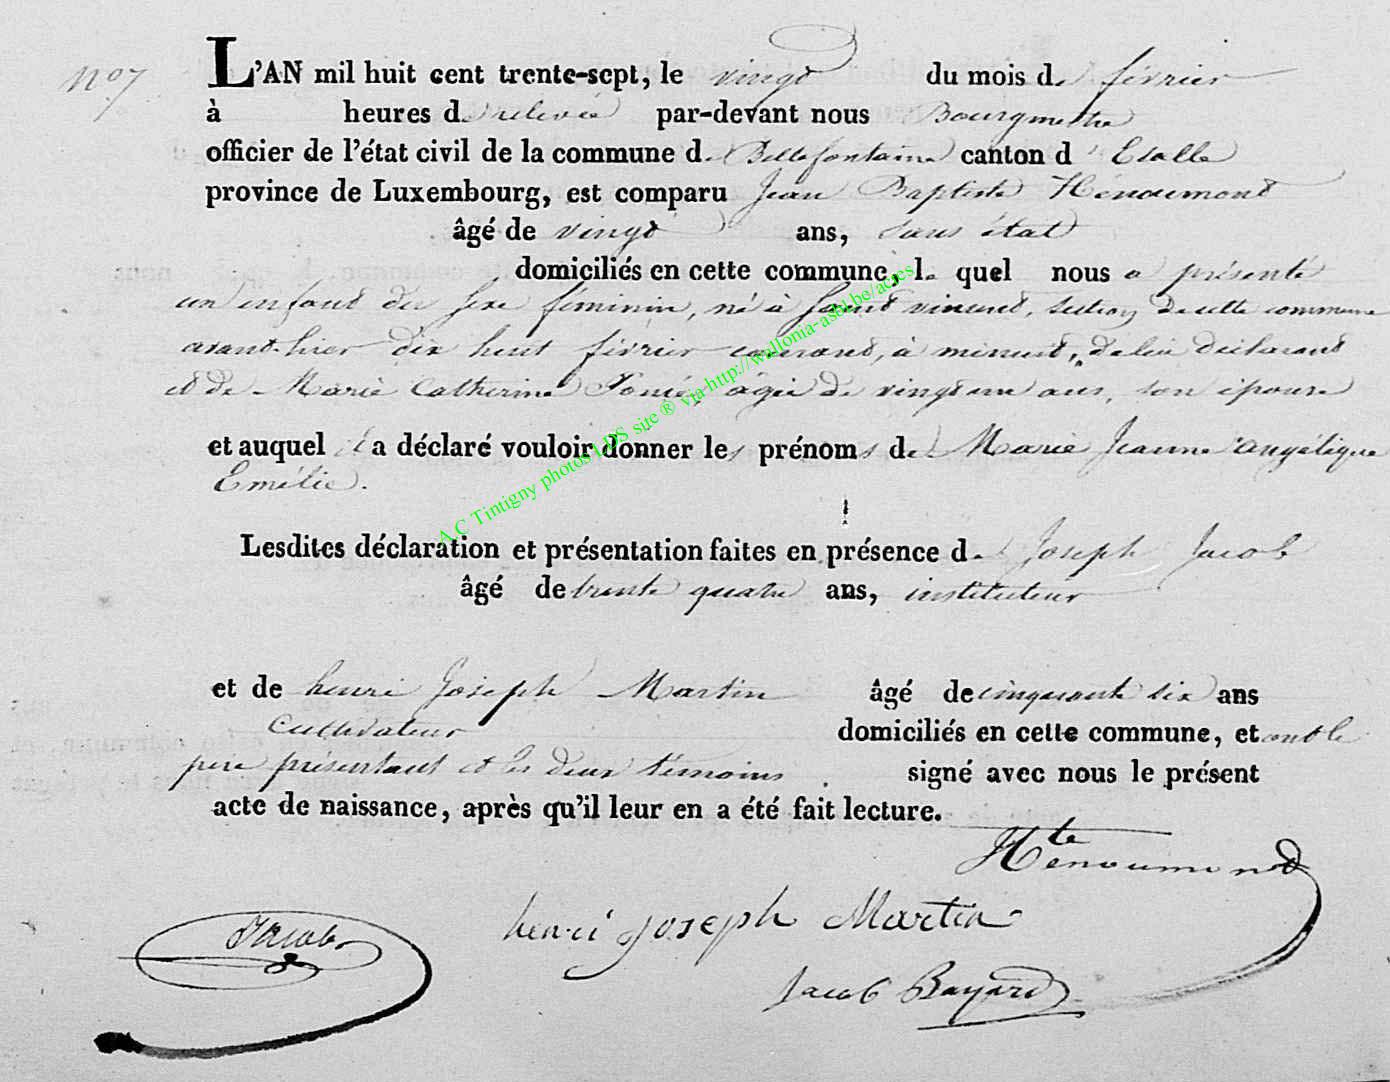 N° 7
L'AN mil huit cent trente-sept, le vingt du mois de février
à heures de relevée par-devant nous Bourgmestre
officier de l'état civil de la commune de Bellefontaine canton d'Etalle
province de Luxembourg, est comparu Jean Baptiste Hénoumont
âgé de vingt ans, sans état
domiciliés en cette commune, le quel nous a présenté
un enfant du sexe féminin, né à Saint vincent, section de cette commune
avant-hier dix huit février courant, à minuit, de lui déclarant
et de Marie Catherine âgée de vingt un ans, son épouse
et auquel il a déclaré vouloir donner les prénoms de Marie Jeanne angélique
Emélie.
Lesdites déclaration et présentation faites en présence de Joseph Jacob
âgé de trente quatre ans, instituteur
et de henri Joseph Martin âgé de cinquante six ans
cultivateur domiciliés en cette commune, et ont le
père présentant et les deux témoins signé avec nous le présent
acte de naissance, après qu'il leur en a été fait lecture.
Henoumont
henri joseph Martin
Jacob
Jacob Bayard
A.C Tintigny photos LDS site ® via http://wallonia-asbl.be/actes